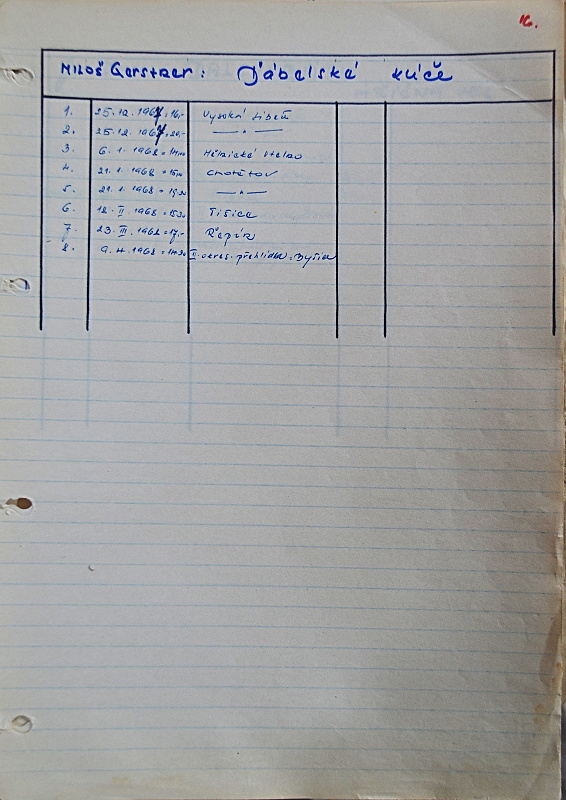 16.
Miloš Gerstner: Ďábelské kliče
1. 25.12.1967 = 16,- Vysoká Libeň
2. 25.12.1967 = 20,- — " —
3. 6.1.1968 = Mělnické Vtelno
4. 21.1.1968 = Chotětov
5. 21.1.1968 = — " —
6. 18.II.1968 = Tišice
7. 23.III.1968 = 17,- Řepín
8. 9.4.1968 = II. okres. přehlídka - Byšice